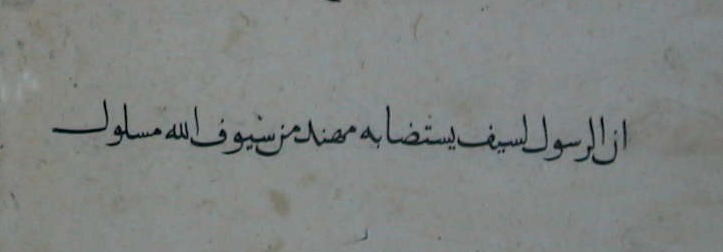 ان الرسول لسيف يستضا به مهند من سيوف الله مسلول